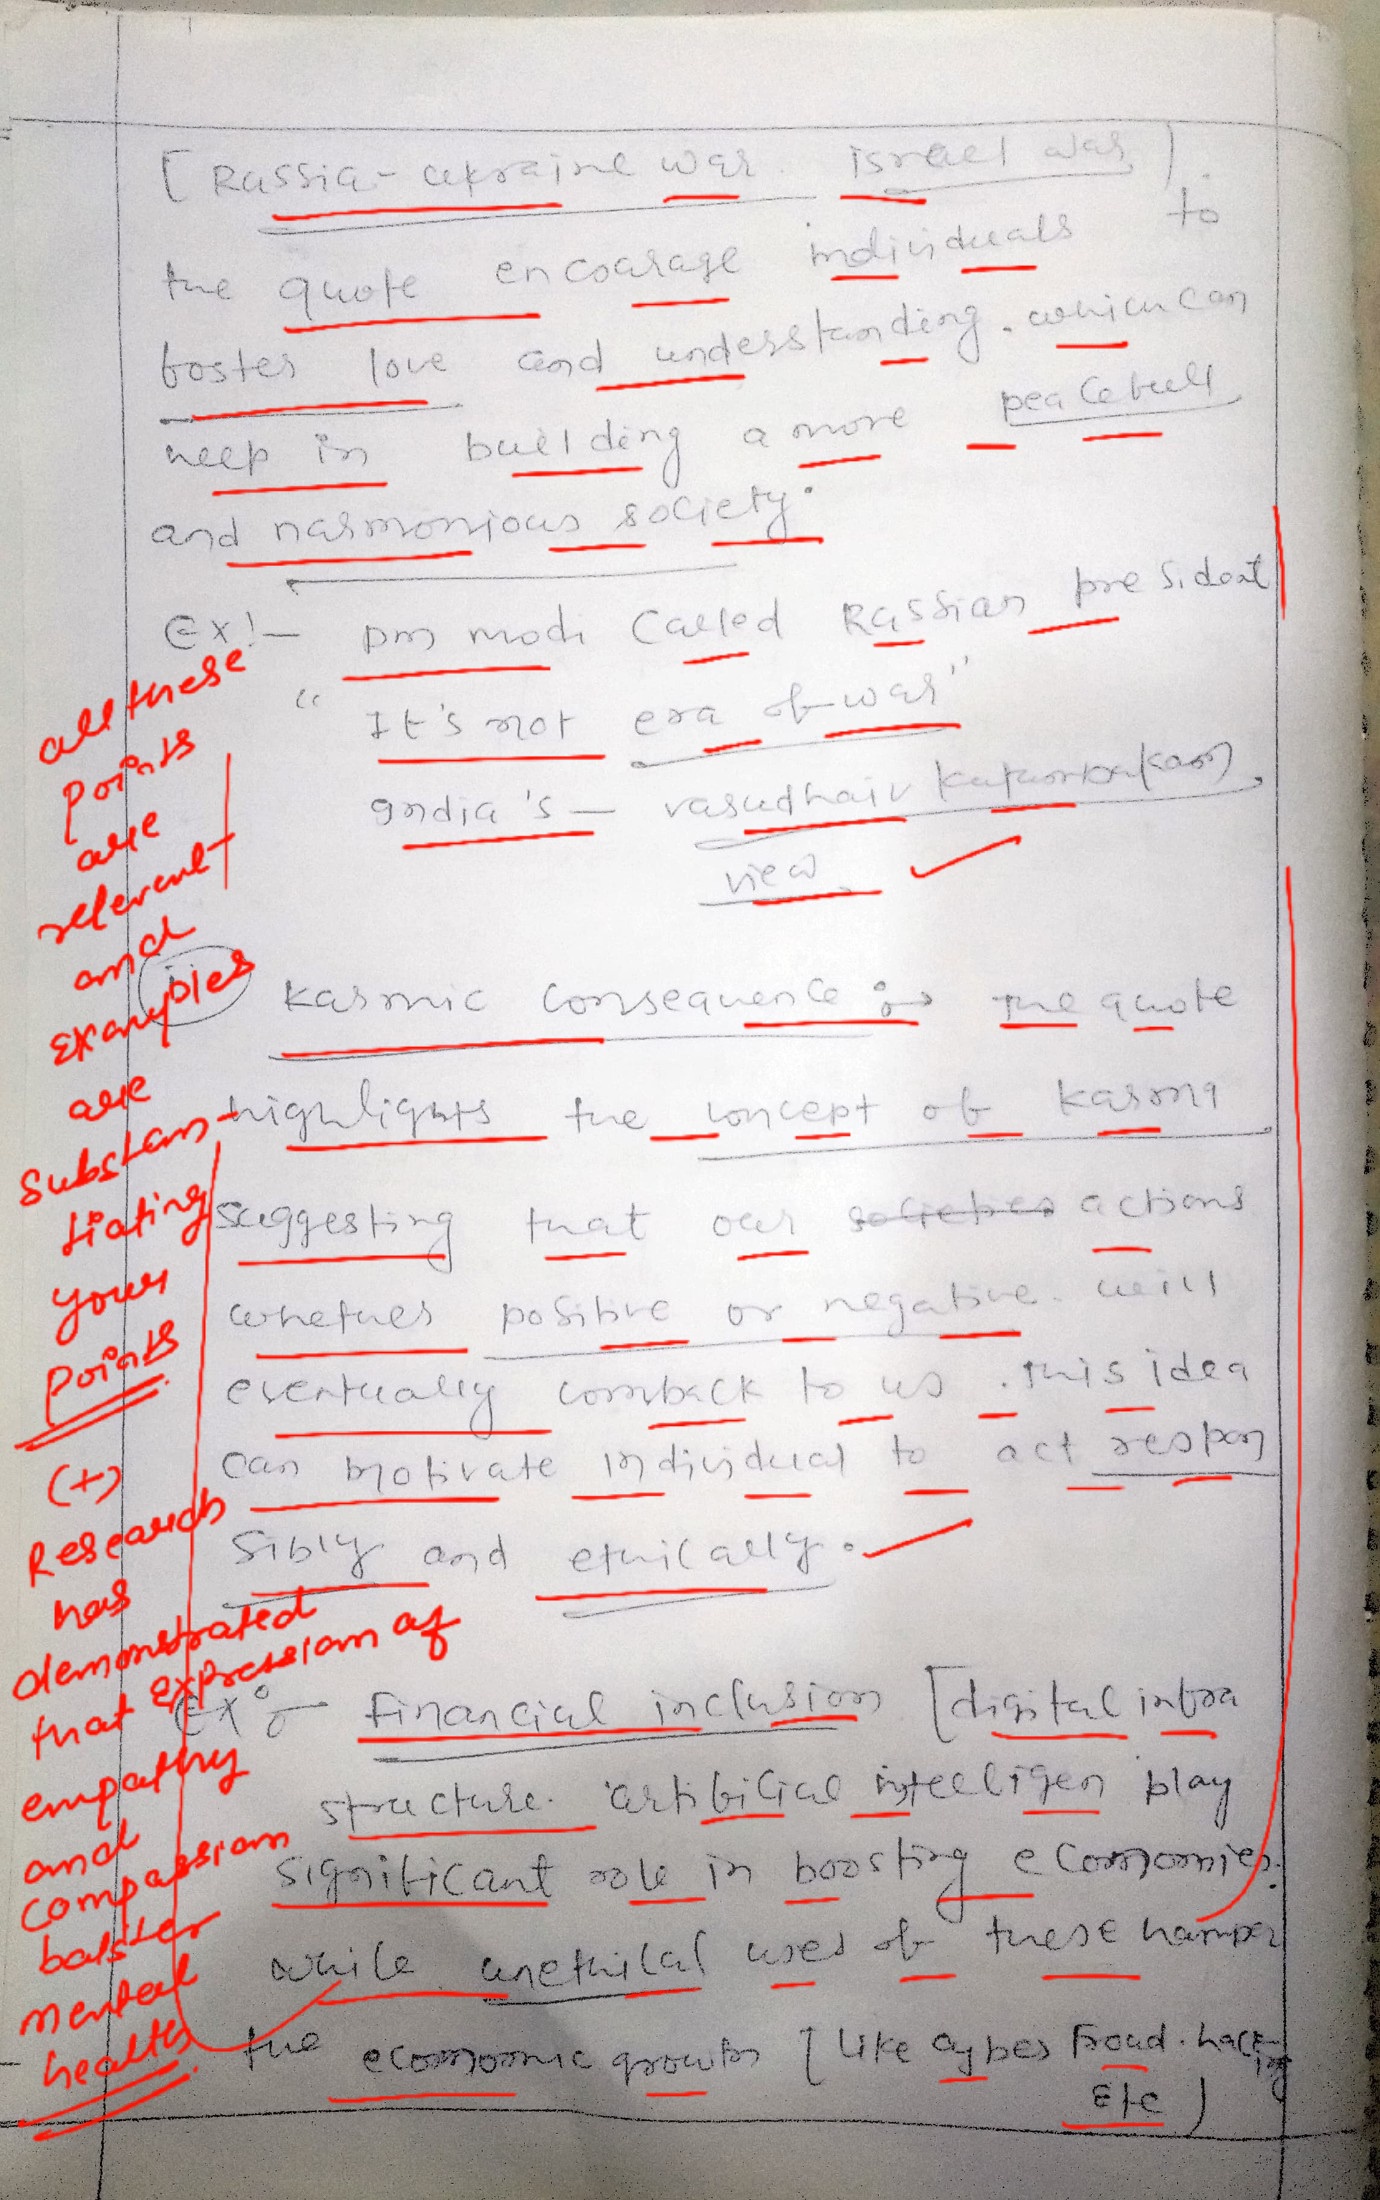 [ Russia - ukraine war. israel war ]
the quote encourage individuals to
foster love and understanding. which can
help in building a more peacefull
and harmonious society.
Ex!- pm modi Called Russian president
"It's not era of war"
India's - vasudhaiv kutumbakam
view.
Karmic Consequence :→ the quote
highlights the concept of karma
suggesting that our societies actions
whether positive or negative. will
eventually comback to us. this idea
can motivate individual to act respon
sibly and ethically.
Ex :- Financial inclusion [digital infra
structure. artificial intelligen play
significant role in boosting economies.
while unethical uses of these hamper
the economic growth [like cyber Froud. hacking
Etc)
all these
points
are
relevant
and
Examples
are
Substan-
tiating
your
points
(+)
Research
has
demonstrated
that expression of
empathy
and
compassion
bolster
mental
health